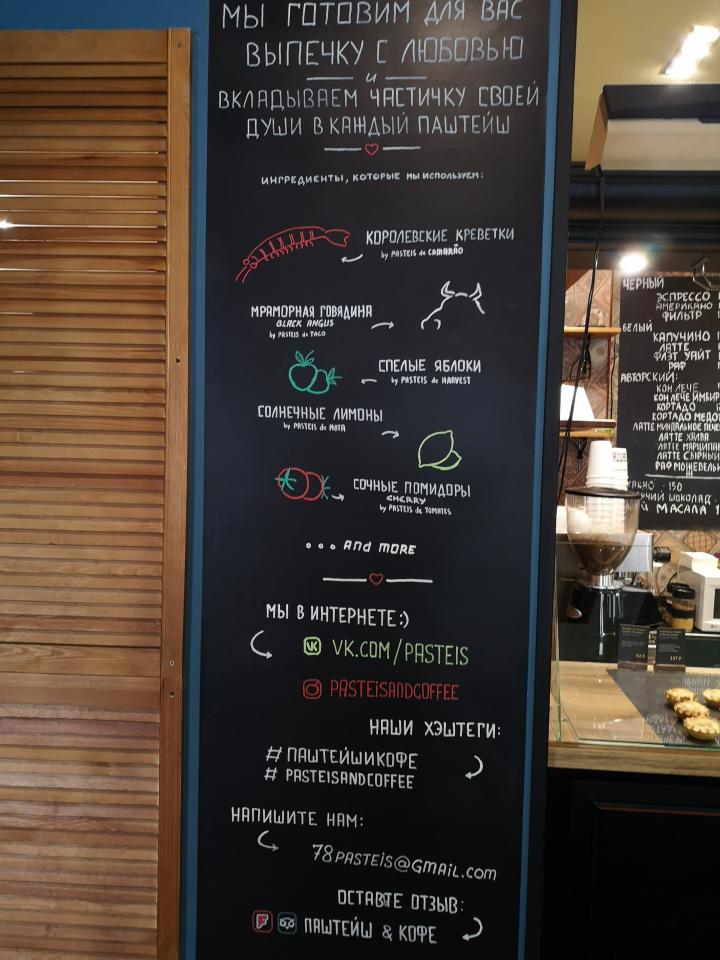 МЫ ГОТОВИМ ДЛЯ ВАС
ВЫПЕЧКУ С ЛЮБОВЬЮ
и
ВКЛАДЫВАЕМ ЧАСТИЧКУ СВОЕЙ
ДУШИ В КАЖДЫЙ ПАШТЕЙШ
ИНГРЕДИЕНТЫ, КОТОРЫЕ МЫ ИСПОЛЬЗУЕМ:
КОРОЛЕВСКИЕ КРЕВЕТКИ
by PASTEIS de CAMARÃO
МРАМОРНАЯ ГОВЯДИНА
BLACK ANGUS
by PASTEIS de TACO
СПЕЛЫЕ ЯБЛОКИ
by PASTEIS de HARVEST
СОЛНЕЧНЫЕ ЛИМОНЫ
by PASTEIS de NATA
СОЧНЫЕ ПОМИДОРЫ
CHERRY
by PASTEIS de TOMATES
... AND MORE
МЫ В ИНТЕРНЕТЕ:)
VK.COM/PASTEIS
PASTEISANDCOFFEE
НАШИ ХЭШТЕГИ:
#ПАШТЕЙШИКОФЕ
# PASTEISANDCOFFEE
НАПИШИТЕ НАМ:
78PASTEIS@GMAIL.COM
ОСТАВТЕ ОТЗЫВ:
ПАШТЕЙШ & КОФЕ
ЧЕРНЫЙ
ЭСПРЕССО
АМЕРИКАНО
ФИЛЬТР
БЕЛЫЙ
КАПУЧИНО
ЛАТТЕ
ФЛЭТ УАЙТ
РАФ
АВТОРСКИЙ:
КОН ЛЕЧЕ
КОН ЛЕЧЕ ИМБИР
КОРТАДО
КОРТАДО МЕДО
ЛАТТЕ МИНДАЛЬНОЕ ПЕЧЕ
ЛАТТЕ ХАЛВА
ЛАТТЕ МАРЦИПАН
ЛАТТЕ СЫРНЫЙ
РАФ МОЖЕВЕЛЬН
150
ШОКОЛАД
МАСАЛА